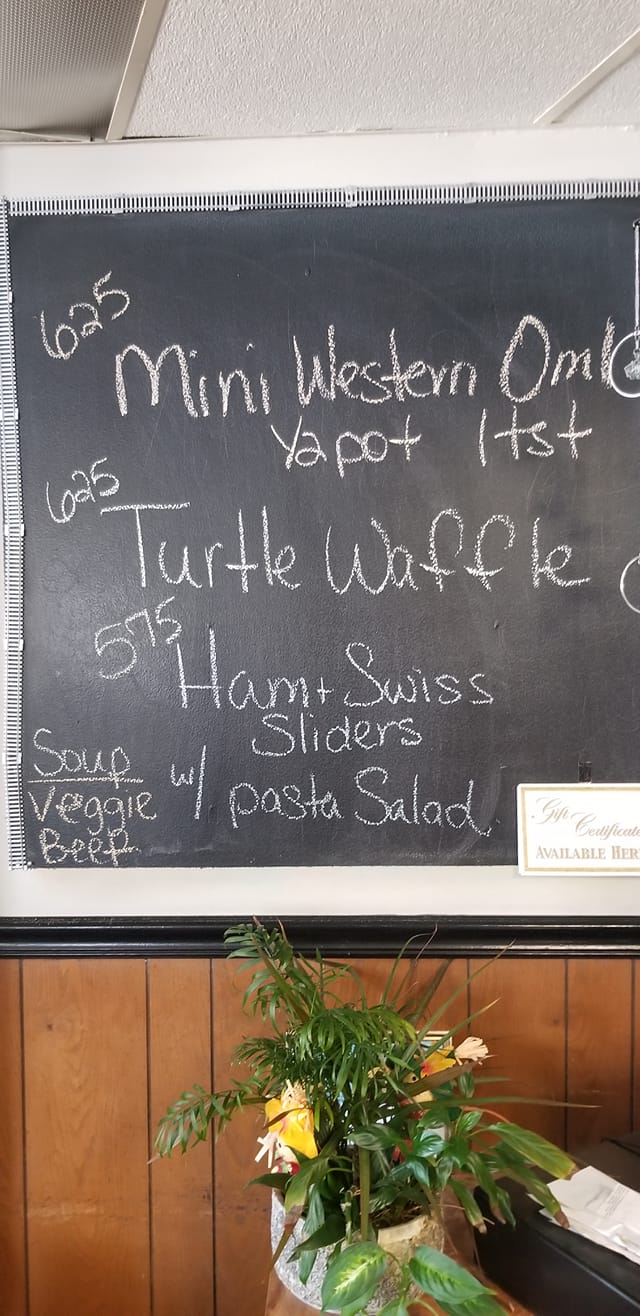 625
Mini Western Oml
½ pot 1 tst
625
Turtle Waffle
575
Ham + Swiss
Sliders
w/ pasta Salad
Soup
Veggie
Beef
Gift
Certificate
AVAILABLE HER